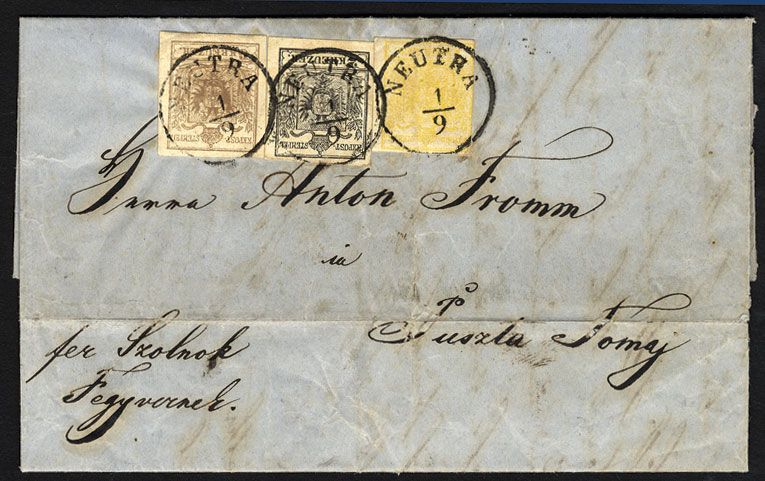 KREUZER
KKPOST STEMPEL
NEUTRA
1/9
NEUTRA
1/9
NEUTRA
1/9
Herrn Anton Fromm
in
Puszta Tomaj
per Szolnok
Fegyvernek.